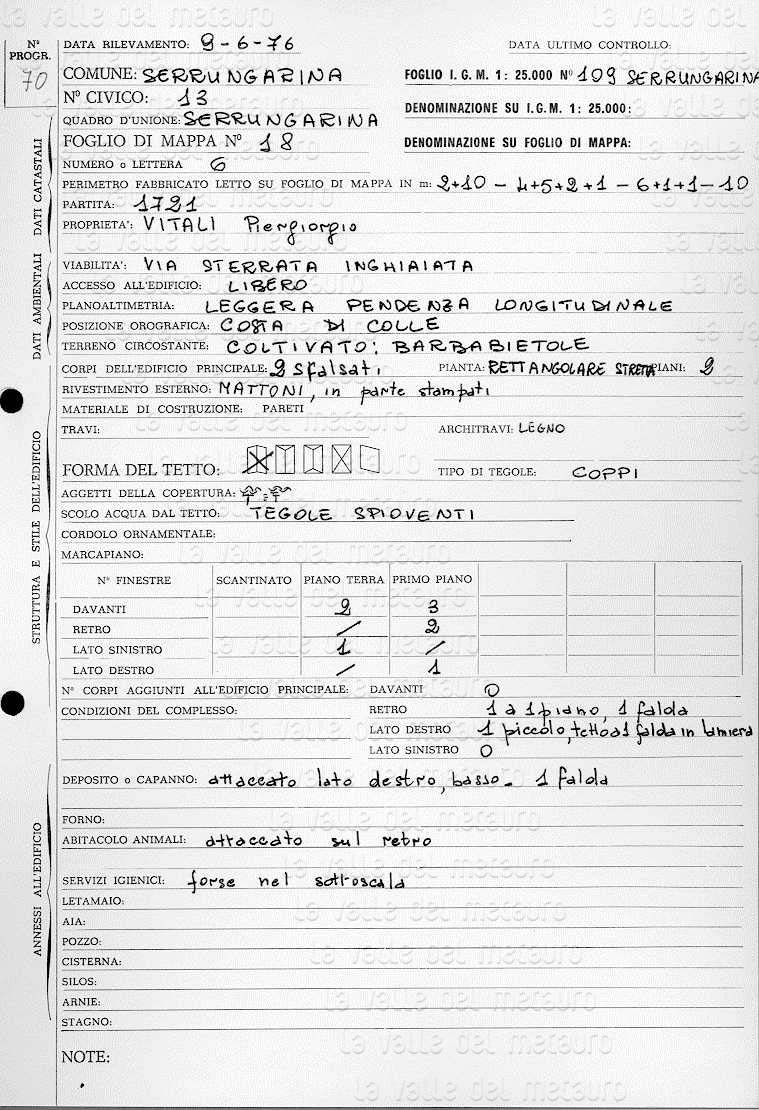 Nº PROGR. 70
DATA RILEVAMENTO: 9-6-76 DATA ULTIMO CONTROLLO:
COMUNE: SERRUNGARINA FOGLIO I.G.M. 1: 25.000 Nº 109 SERRUNGARINA
Nº CIVICO: 13 DENOMINAZIONE SU I.G.M. 1: 25.000:
QUADRO D'UNIONE: SERRUNGARINA
FOGLIO DI MAPPA Nº 18 DENOMINAZIONE SU FOGLIO DI MAPPA:
NUMERO o LETTERA 6
PERIMETRO FABBRICATO LETTO SU FOGLIO DI MAPPA IN m: 2+10 - 4+5+2+1 - 6+1+1-10
PARTITA: 1721
PROPRIETA': VITALI Piergiorgio
DATI CATASTALI
VIABILITA': VIA STERRATA INGHIAIATA
ACCESSO ALL'EDIFICIO: LIBERO
PLANOALTIMETRIA: LEGGERA PENDENZA LONGITUDINALE
POSIZIONE OROGRAFICA: COSTA DI COLLE
TERRENO CIRCOSTANTE: COLTIVATO: BARBABIETOLE
DATI AMBIENTALI
CORPI DELL'EDIFICIO PRINCIPALE: 2 sfalsati PIANTA: RETTANGOLARE STRETTA PIANI: 2
RIVESTIMENTO ESTERNO: MATTONI, in parte stampati
MATERIALE DI COSTRUZIONE: PARETI
TRAVI: ARCHITRAVI: LEGNO
FORMA DEL TETTO: TIPO DI TEGOLE: COPPI
AGGETTI DELLA COPERTURA:
SCOLO ACQUA DAL TETTO: TEGOLE SPIOVENTI
CORDOLO ORNAMENTALE:
MARCAPIANO:
Nº FINESTRE SCANTINATO PIANO TERRA PRIMO PIANO
DAVANTI 2 3
RETRO / 2
LATO SINISTRO 1 /
LATO DESTRO / 1
STRUTTURA E STILE DELL'EDIFICIO
Nº CORPI AGGIUNTI ALL'EDIFICIO PRINCIPALE: DAVANTI 0
CONDIZIONI DEL COMPLESSO: RETRO 1 a 1 piano, 1 falda
LATO DESTRO 1 piccolo, tetto a 1 falda in lamiera
LATO SINISTRO 0
DEPOSITO o CAPANNO: attaccato lato destro, basso - 1 falda
FORNO:
ABITACOLO ANIMALI: attaccato sul retro
SERVIZI IGIENICI: forse nel sottoscala
LETAMAIO:
AIA:
POZZO:
CISTERNA:
SILOS:
ARNIE:
STAGNO:
ANNESSI ALL'EDIFICIO
NOTE:
la valle del metauro